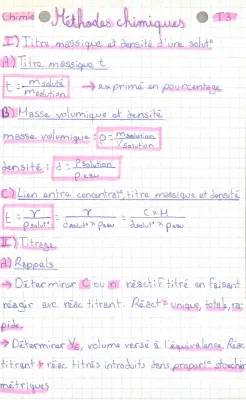 Chimie Méthodes chimiques T3
I) Titre massique et densité d'une solut°
A) Titre massique t
t = m soluté / m solution → exprimé en pourcentage
B) Masse volumique et densité
masse volumique : ρ = m solution / V solution
densité : d = ρ solution / ρ eau
C) Lien entre concentrat°, titre massique et densité
t = γ / ρ solut° = γ / d solut° × ρ eau = C × M / d solut° × ρ eau
II) Titrage
A) Rappels
→ Déterminer C ou n réactif titré en faisant
réagir avc réac titrant. Réact° = unique, totale, ra
pide.
→ Déterminer VE, volume versé à l'équivalence. Réac
titrant + réac titrés introduits dans proport° stœchio
métriques